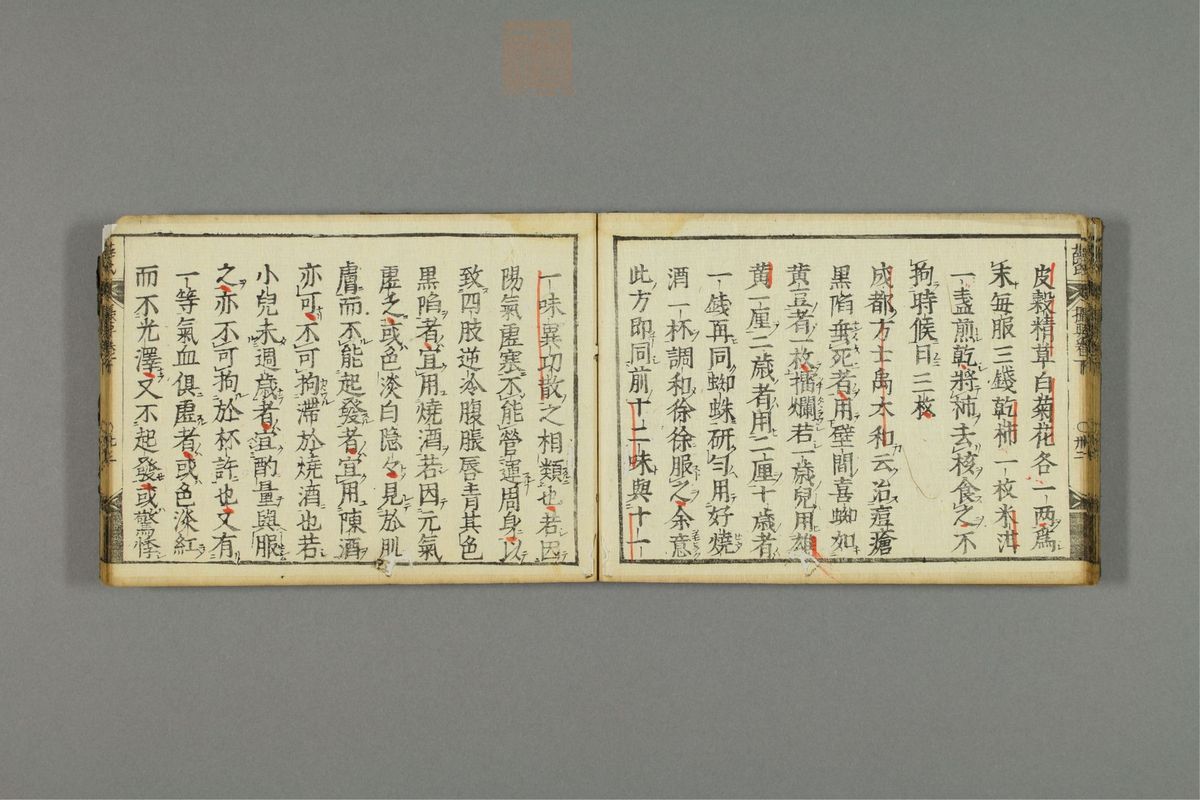 皮穀精草白菊花各一兩爲
末每服三錢乾柿一枚米泔
一盞煎乾將柿去核食之不
拘時候日三枚
成都方士禺木和云治痘瘡
黑陷垂死者用壁間喜蜘如
黃豆者一枚擂爛若一歲兒用雄
黃一厘二歲者用二厘十歲者
一錢再同蜘蛛研勻用好燒
酒一杯調和徐徐服之余意
此方即同前十二味與十一
一味異功散之相類也若因
陽氣虛寒不能營運周身以
致四肢逆冷腹脹唇青其色
黑陷者宜用燒酒若因元氣
虛乏或色淡白隱々見於肌
膚而不能起發者宜用陳酒
亦可不可拘滯於燒酒也若
小兒未週歲者宜酌量與服
之亦不可拘於杯許也又有
一等氣血俱虛者或色淡紅
而不光澤又不起發或驚悸